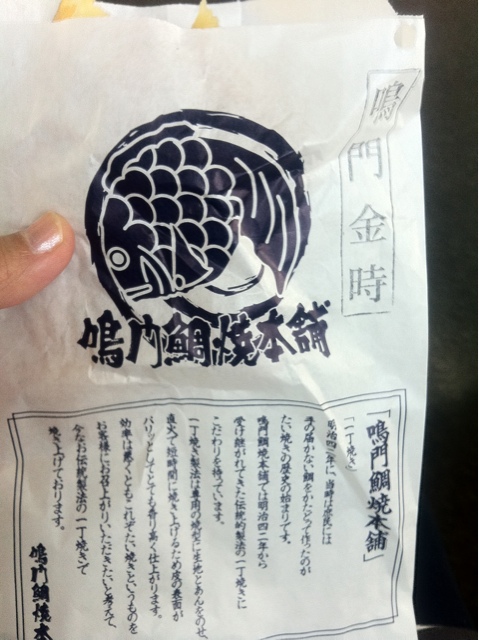 鳴門金時
鳴門鯛焼本舗
「鳴門鯛焼本舗」
「一丁焼き」
明治四二年に、当時は庶民には
手の届かない鯛をかたどって作ったのが
たい焼きの歴史の始まりです。
鳴門鯛焼本舗では明治四二年から
受け継がれてきた伝統的製法の一丁焼きに
こだわりを持っています。
一丁焼き製法は専用の焼型に生地とあんをのせ、
直火で短時間に焼き上げるため皮の表面が
パリッとしてとても香り高く仕上がります。
効率は悪くともこれぞたい焼きというものを
お客様にお召上がりいただきたいと考えて、
今なお伝統製法の一丁焼きで
焼き上げております。
鳴門鯛焼本